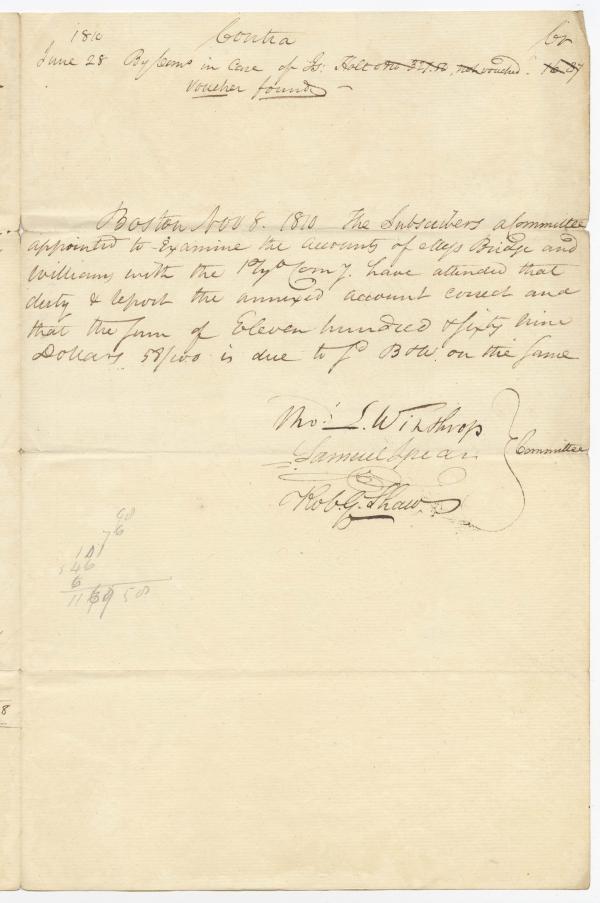 1810 Contra Cr
June 28 By sums in Case of Js. Holt not vouched. 16.87
Voucher found -
Boston Nov 8. 1810 The Subscribers a Committee
appointed to Examine the accounts of Mess Bridge and
Williams with the Comy. have attended that
duty & report the annexed account correct and
that the sum of Eleven hundred & sixty nine
Dollars 58/100 is due to sd B & W. on the same
Tho.s L. Winthrop
Samuel Spear
Committee
Rob. G. Shaw
68
76
141
546
6
1169 58
8